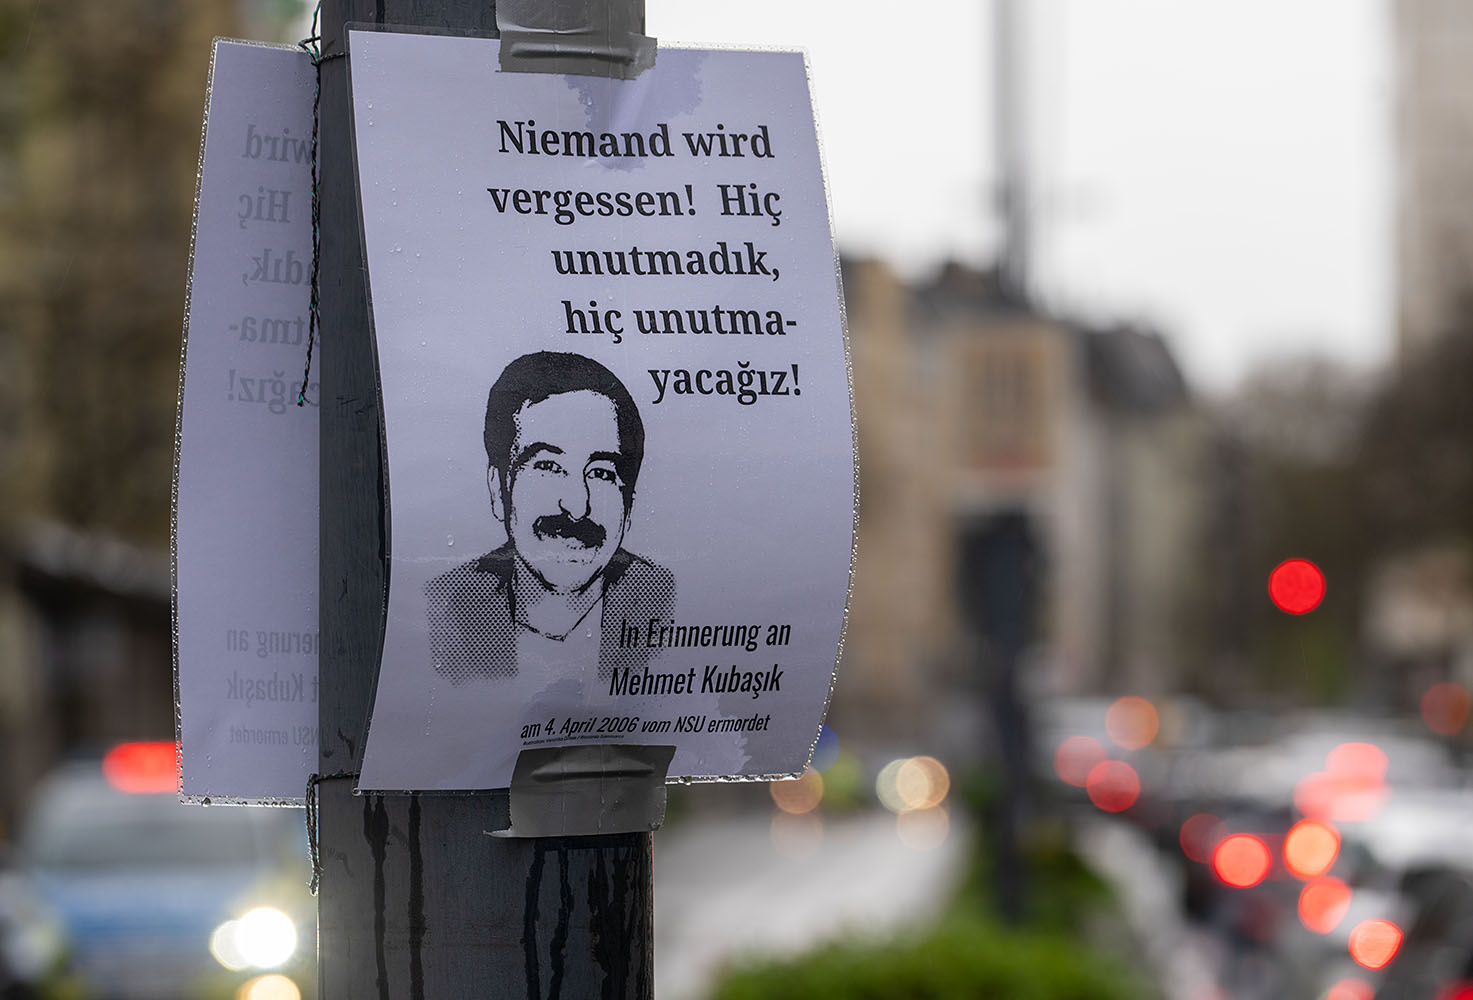 Niemand wird
vergessen! Hiç
unutmadık,
hiç unutma-
yacağız!
In Erinnerung an
Mehmet Kubaşık
am 4. April 2006 vom NSU ermordet
wird
Hiç
dık,
tma-
cağız!
erung an
t Kubaşık
NSU ermordet